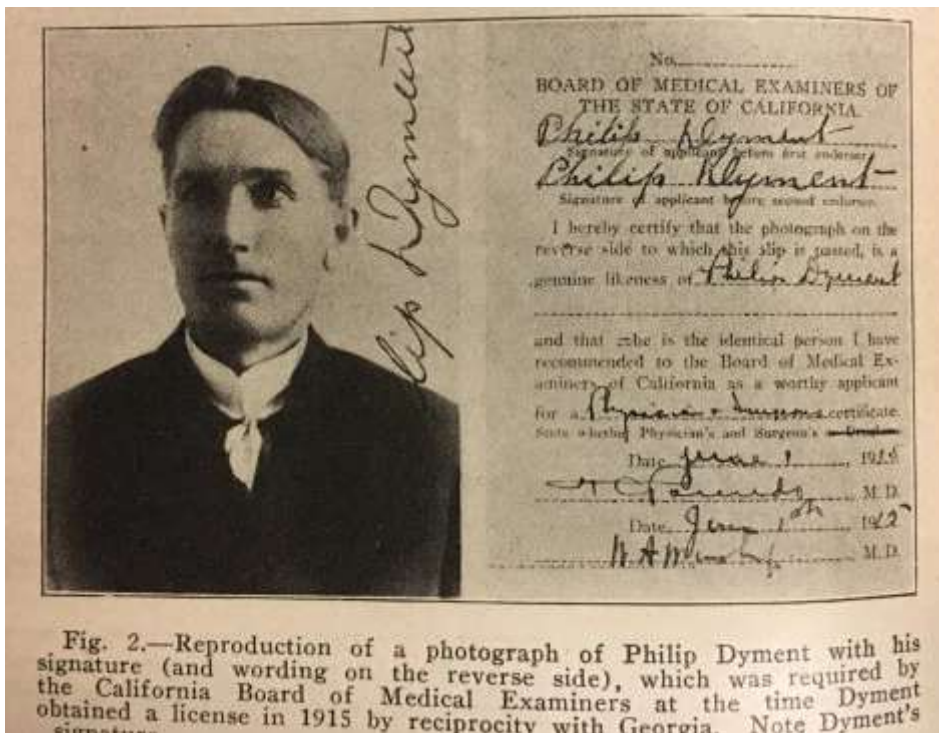 Philip Dyment
No.
BOARD OF MEDICAL EXAMINERS OF
THE STATE OF CALIFORNIA.
Philip Dyment
Signature of applicant before first endorser
Philip Dyment
Signature of applicant before second endorser.
I hereby certify that the photograph on the
reverse side to which this slip is pasted, is a
genuine likeness of Philip Dyment
and that she is the identical person I have
recommended to the Board of Medical Ex-
aminers of California as a worthy applicant
for a Physician & Surgeons certificate.
State whether Physician's and Surgeon's
Date June 1, 1915
M.D.
Date June 1st 1915
M.D.
Fig. 2.—Reproduction of a photograph of Philip Dyment with his
signature (and wording on the reverse side), which was required by
the California Board of Medical Examiners at the time Dyment
obtained a license in 1915 by reciprocity with Georgia. Note Dyment's
signature